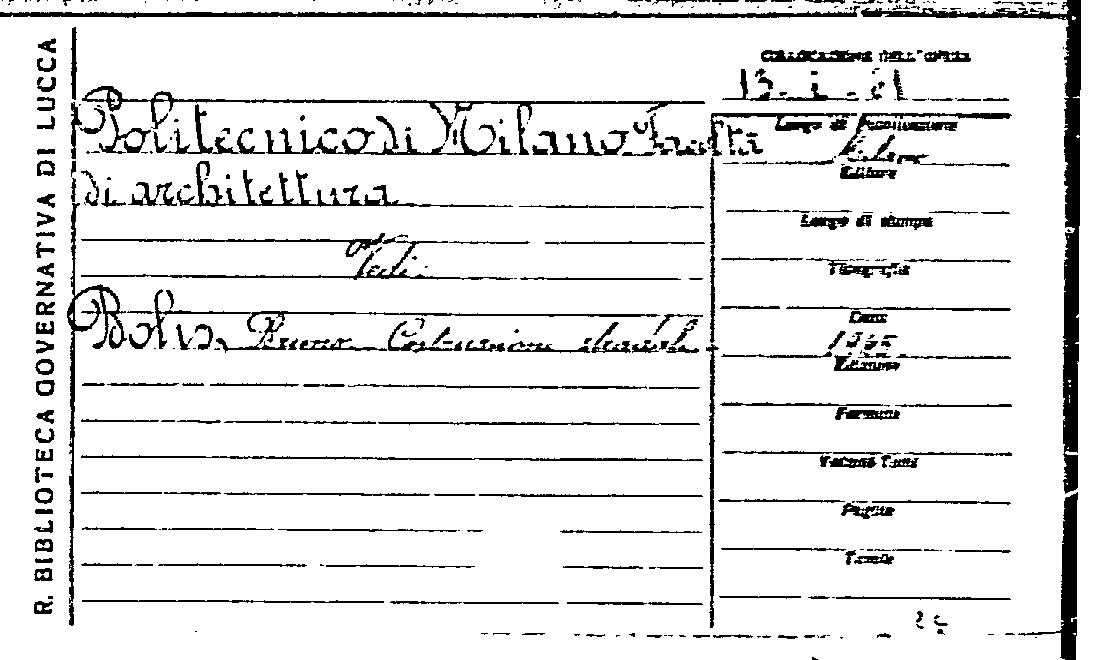 R. BIBLIOTECA GOVERNATIVA DI LUCCA
COLLOCAZIONE DELL'OPERA
13 - i - 21
Politecnico di Milano Facoltà
di architettura
Vedi
Bolis, Bruno Costruzioni stradali
Luogo di Pubblicazione
Milano
Editore
Luogo di stampa
Tipografia
Data
Edizione
Formato
Volumi Tomi
Pagine
Tavole